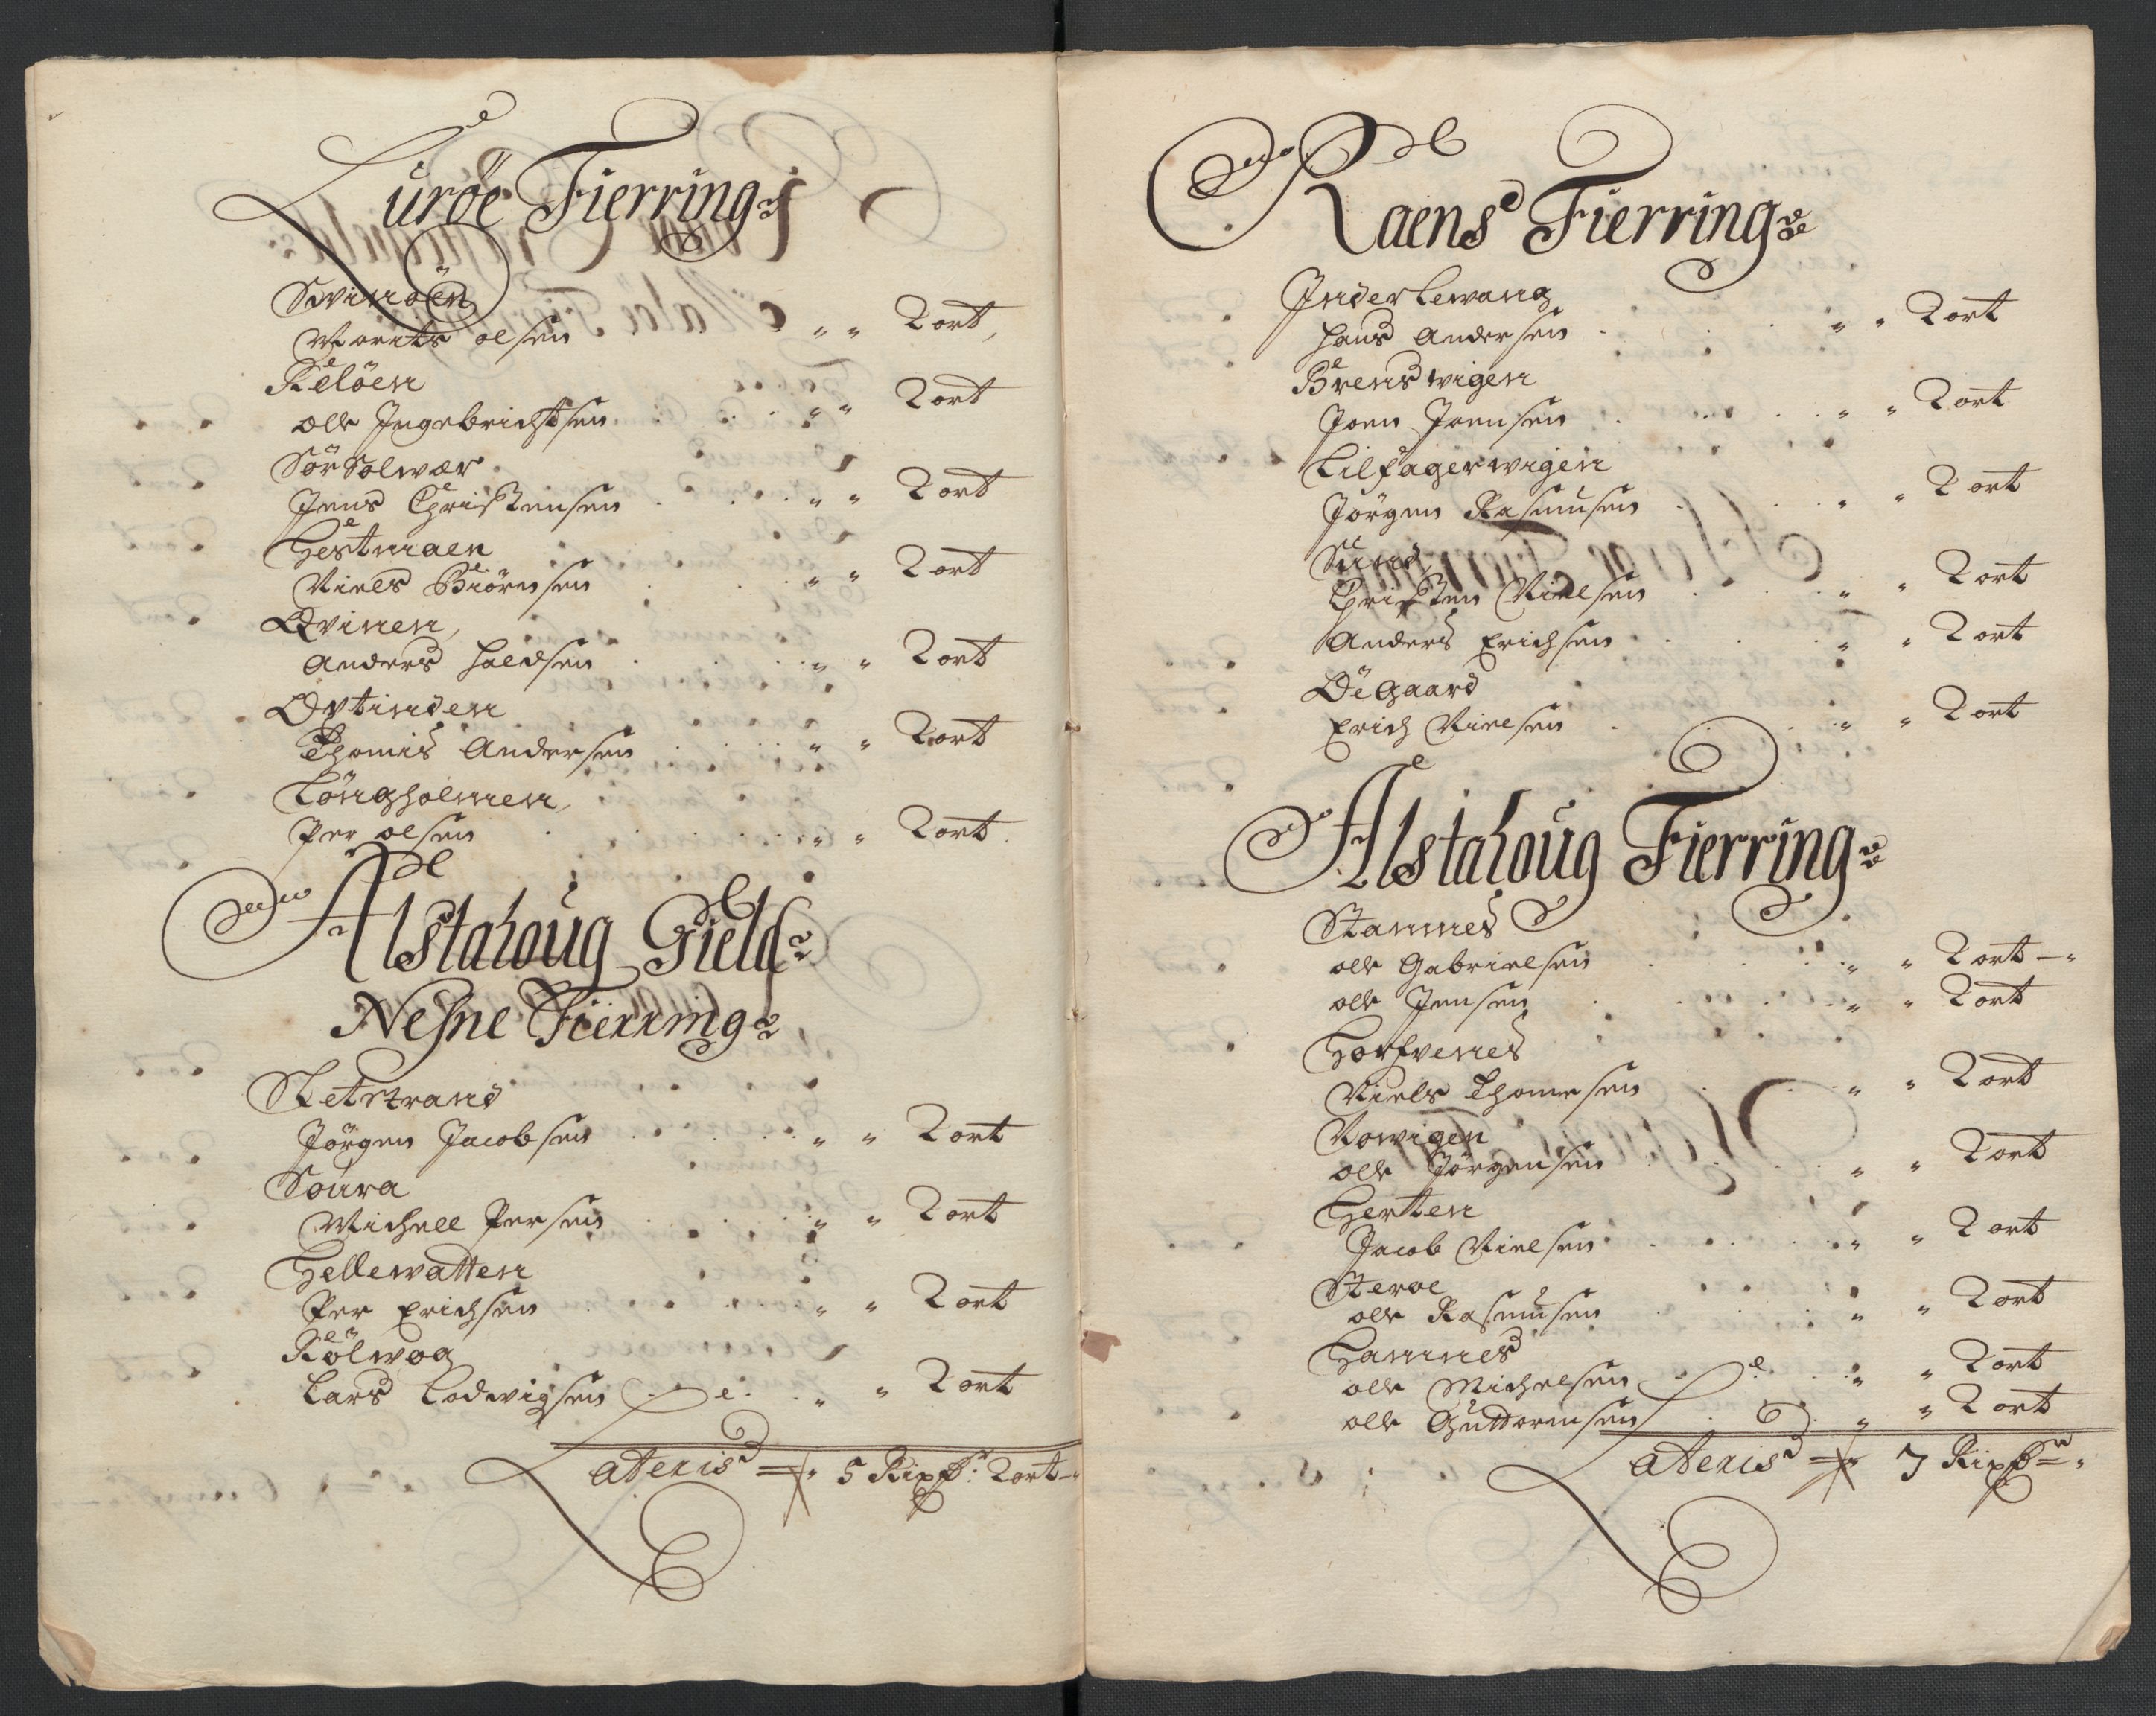 Lurøe Fierring
Svinøen
Morits olsen " " 2 ort
Keløen
olle Ingebrichtsen " " 2 ort
Sör Solwær
Jens Christensen " " 2 ort
Hestmaen
Niels Biörnsen " " 2 ort
Qvinen
Anders Haldsen " " 2 ort
Qvtinden
Thomis Andersen " " 2 ort
Löngholmen
Per olsen " " 2 ort
Alstahoug Gield
Nesne Fierring
Sletstrand
Jörgen Jacobsen " " 2 ort
Soura
Michell Persen " " 2 ort
Hellewatten
Per Erichsen " " 2 ort
Kölwog
Lars Lodwigsen " " 2 ort
Lateris " 5 2 ort
Raens Fierring
Inderlewang
Hans Andersen " " 2 ort
Brenswigen
Joen Joensen " " 2 ort
Lilfagerwigen
Jörgen Rasmusen " " 2 ort
Sund
Christen Nielsen " " 2 ort
Anders Erichsen " " 2 ort
Öegaard
Erich Nielsen " " 2 ort
Alstahoug Fierring
Stamnes
olle Gabrielsen " " 2 ort
olle Jensen " " 2 ort
Horfvenes
Niels Thomesen " " 2 ort
Nowigen
olle Jörgensen " " 2 ort
Herten
Jacob Nielsen " " 2 ort
Steroe
olle Rasmusen " " 2 ort
Hamnes
olle Michelsen " " 2 ort
olle Guttormsen " " 2 ort
Lateris " 7